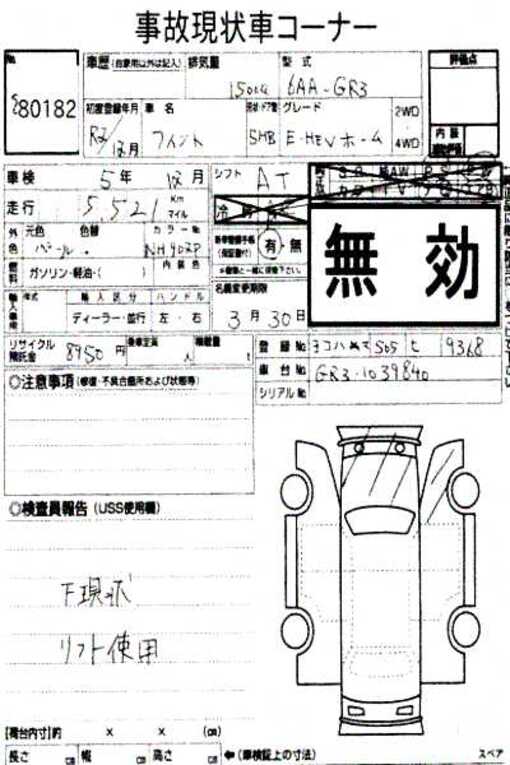 事故現状車コーナー
No.
80182
車歴(自家用以外は記入)
排気量
1500cc
型式
6AA-GR3
評価点
初度登録年月
R2/12月
車名
フィット
形状・ドア数
5HB
グレード
E-HEVホーム
2WD
4WD
内装
車検 5年 12月
シフト AT
走行 5,521 Km マイル
外色 元色 色替 カラーNo.
パール
燃料 ガソリン・軽油・( )
内装色
有・無
無効
名義変更期限
3月30日
輸入車用 年式 輸入区分 ハンドル
ディーラー・並行 左・右
リサイクル預託金 8950円
乗車定員 人
積載量 t
登録No. ヨコハマ 505 ヒ 9368
車台No. GR3-1039840
シリアルNo.
◎注意事項(修復・不具合箇所および状態等)
◎検査員報告(USS使用欄)
下現状
リフト使用
[荷台内寸]約 × × (cm)
長さ cm 幅 cm 高さ cm
←(車検証上の寸法)
スペア